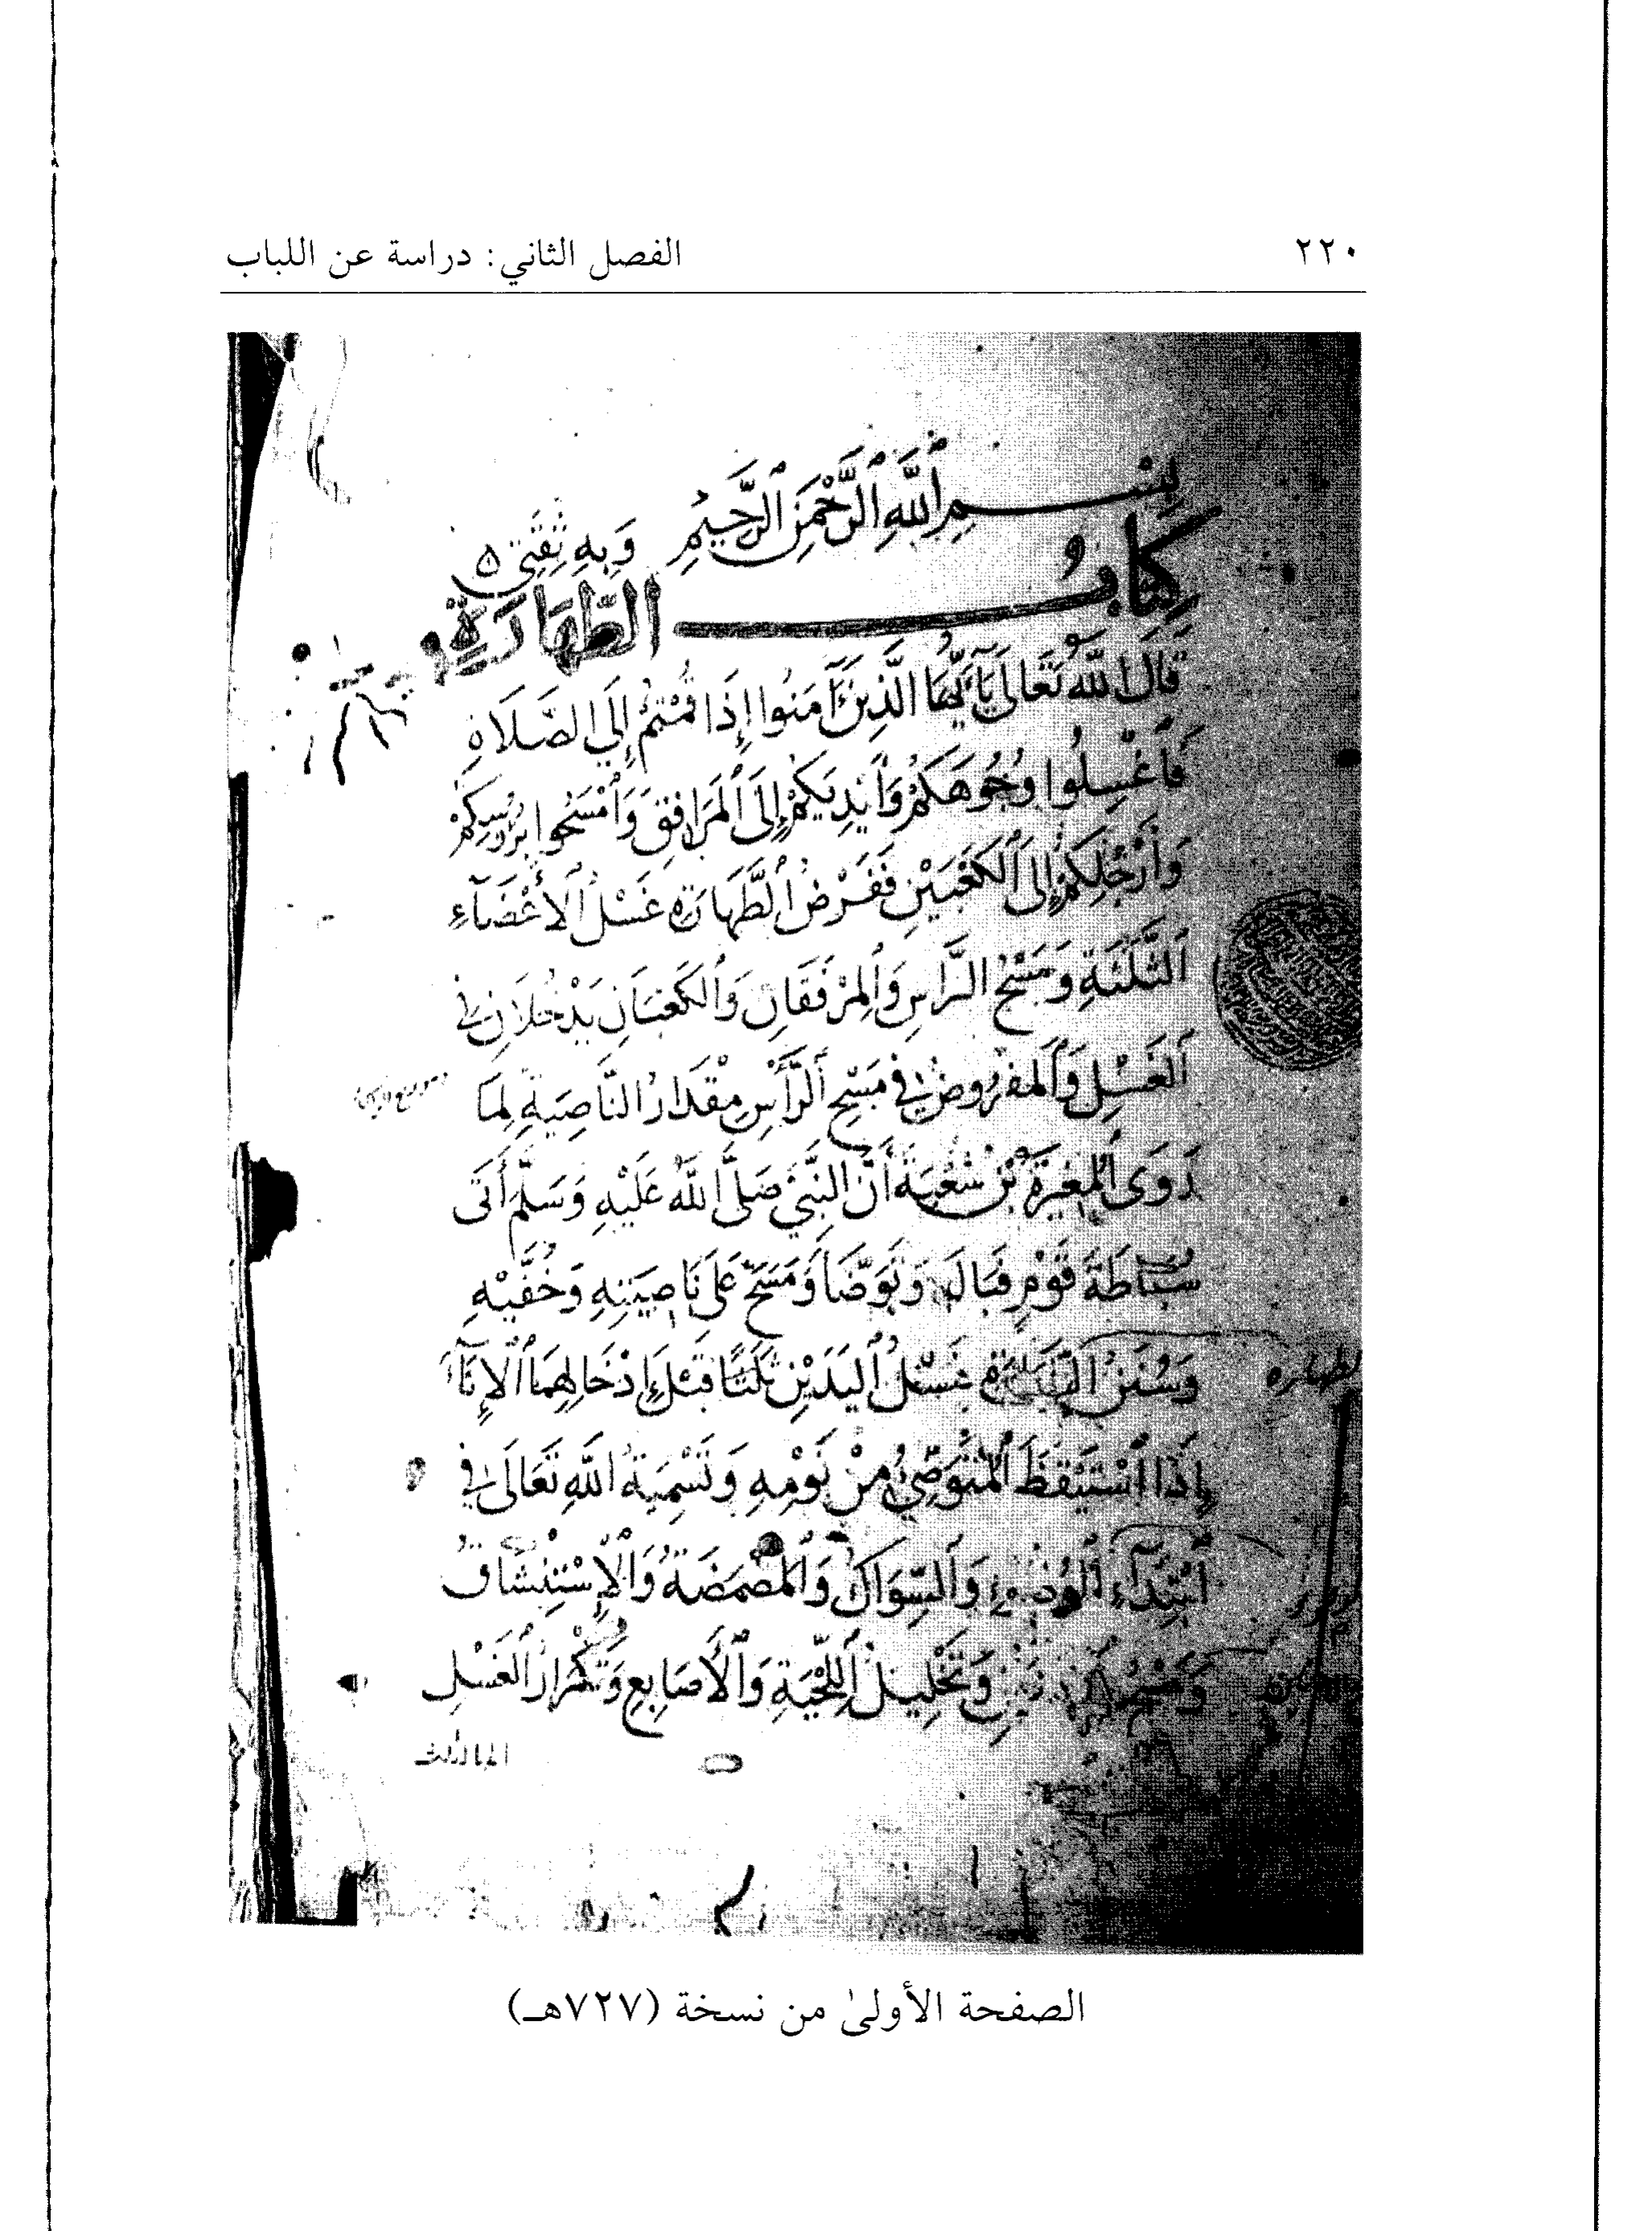 ٢٢٠
الفصل الثاني: دراسة عن اللباب
بِسْمِ ٱللَّهِ ٱلرَّحْمَنِ ٱلرَّحِيمِ وَبِهِ ثِقَتِي
كِتَابُ الطَّهَارَةِ
قَالَ اللَّهُ تَعَالَى يَا أَيُّهَا الَّذِينَ آمَنُوا إِذَا قُمْتُمْ إِلَى الصَّلَاةِ
فَاغْسِلُوا وُجُوهَكُمْ وَأَيْدِيَكُمْ إِلَى ٱلْمَرَافِقِ وَٱمْسَحُوا بِرُءُوسِكُمْ
وَأَرْجُلِكُمْ إِلَى ٱلْكَعْبَيْنِ فَفَرْضُ ٱلطَّهَارَةِ غَسْلُ ٱلْأَعْضَآءِ
ٱلثَّلٰثَةِ وَمَسْحُ الرَّاسِ وَٱلْمِرْفَقَانِ وَٱلْكَعْبَانِ يَدْخُلَانِ فِي
ٱلْغَسْلِ وَٱلْمَفْرُوضُ فِي مَسْحِ ٱلرَّأْسِ مِقْدَارُ النَّاصِيَةِ لِمَا
رَوَى ٱلْمُغِيرَةُ بْنُ شُعْبَةَ أَنَّ النَّبِيَّ صَلَّى ٱللَّهُ عَلَيْهِ وَسَلَّمَ أَتَى
سُبَاطَةَ قَوْمٍ فَبَالَ وَتَوَضَّأَ وَمَسَحَ عَلَى نَاصِيَتِهِ وَخُفَّيْهِ
وَسُنَنُ الطَّهَارَةِ غَسْلُ ٱلْيَدَيْنِ ثَلٰثًا قَبْلَ إِدْخَالِهِمَا ٱلْإِنَآءَ
لطهاره
إِذَا ٱسْتَيْقَظَ ٱلْمُتَوَضِّئُ مِنْ نَوْمِهِ وَتَسْمِيَةُ اللَّهِ تَعَالَى فِي
ٱبْتِدَآءِ ٱلْوُضُوءِ وَٱلسِّوَاكُ وَٱلْمَضْمَضَةُ وَٱلْإِسْتِنْشَاقُ
وَمَسْحُ ٱلْأُذُنَيْنِ وَتَخْلِيلُ ٱللِّحْيَةِ وَٱلْأَصَابِعِ وَتَكْرَارُ ٱلْغَسْلِ
الصفحة الأولىٰ من نسخة (٧٢٧هـ)